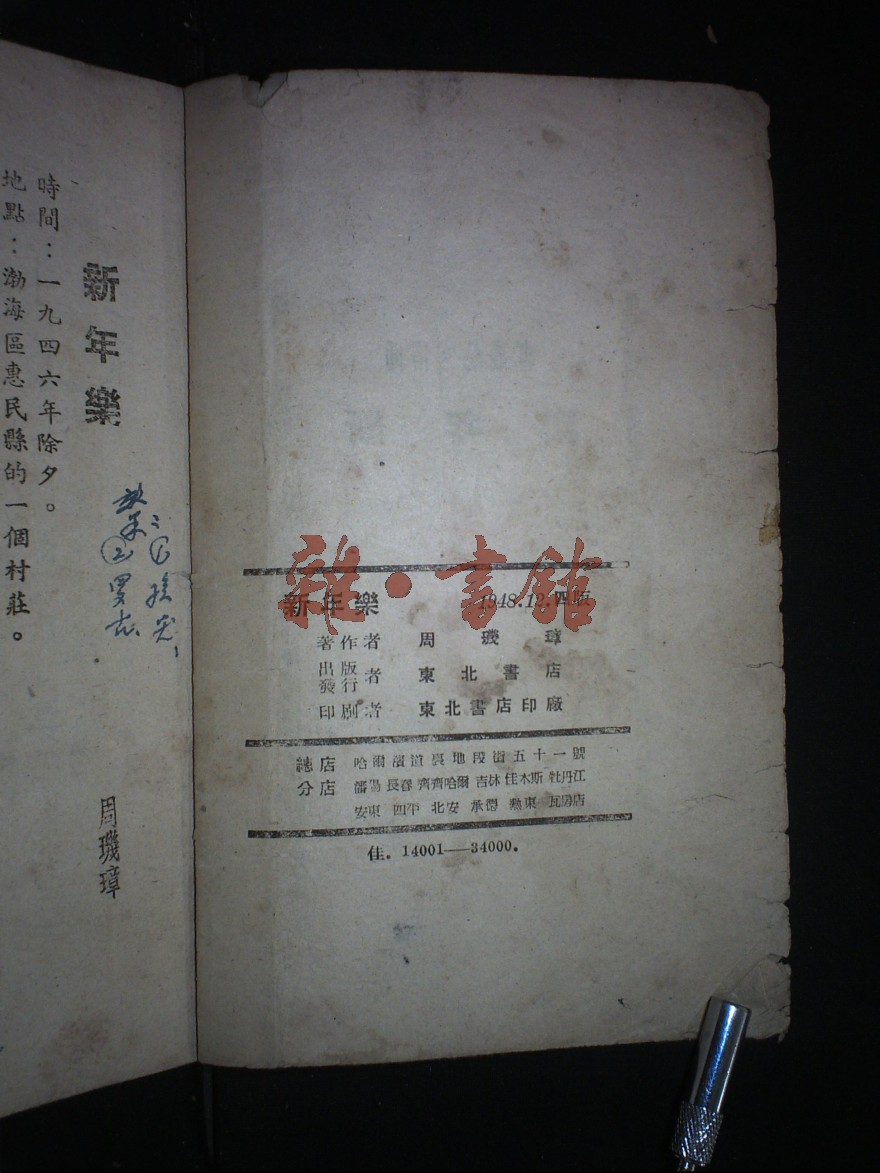 新年樂
周璣璋
時間：一九四六年除夕。
地點：渤海區惠民縣的一個村莊。
雜·書館
新年樂 1948.12.四版
著作者 周璣璋
出版發行者 東北書店
印刷者 東北書店印廠
總店 哈爾濱道裏地段街五十一號
分店 瀋陽 長春 齊齊哈爾 吉林 佳木斯 牡丹江
安東 四平 北安 承德 勃東 瓦房店
佳. 14001——34000.